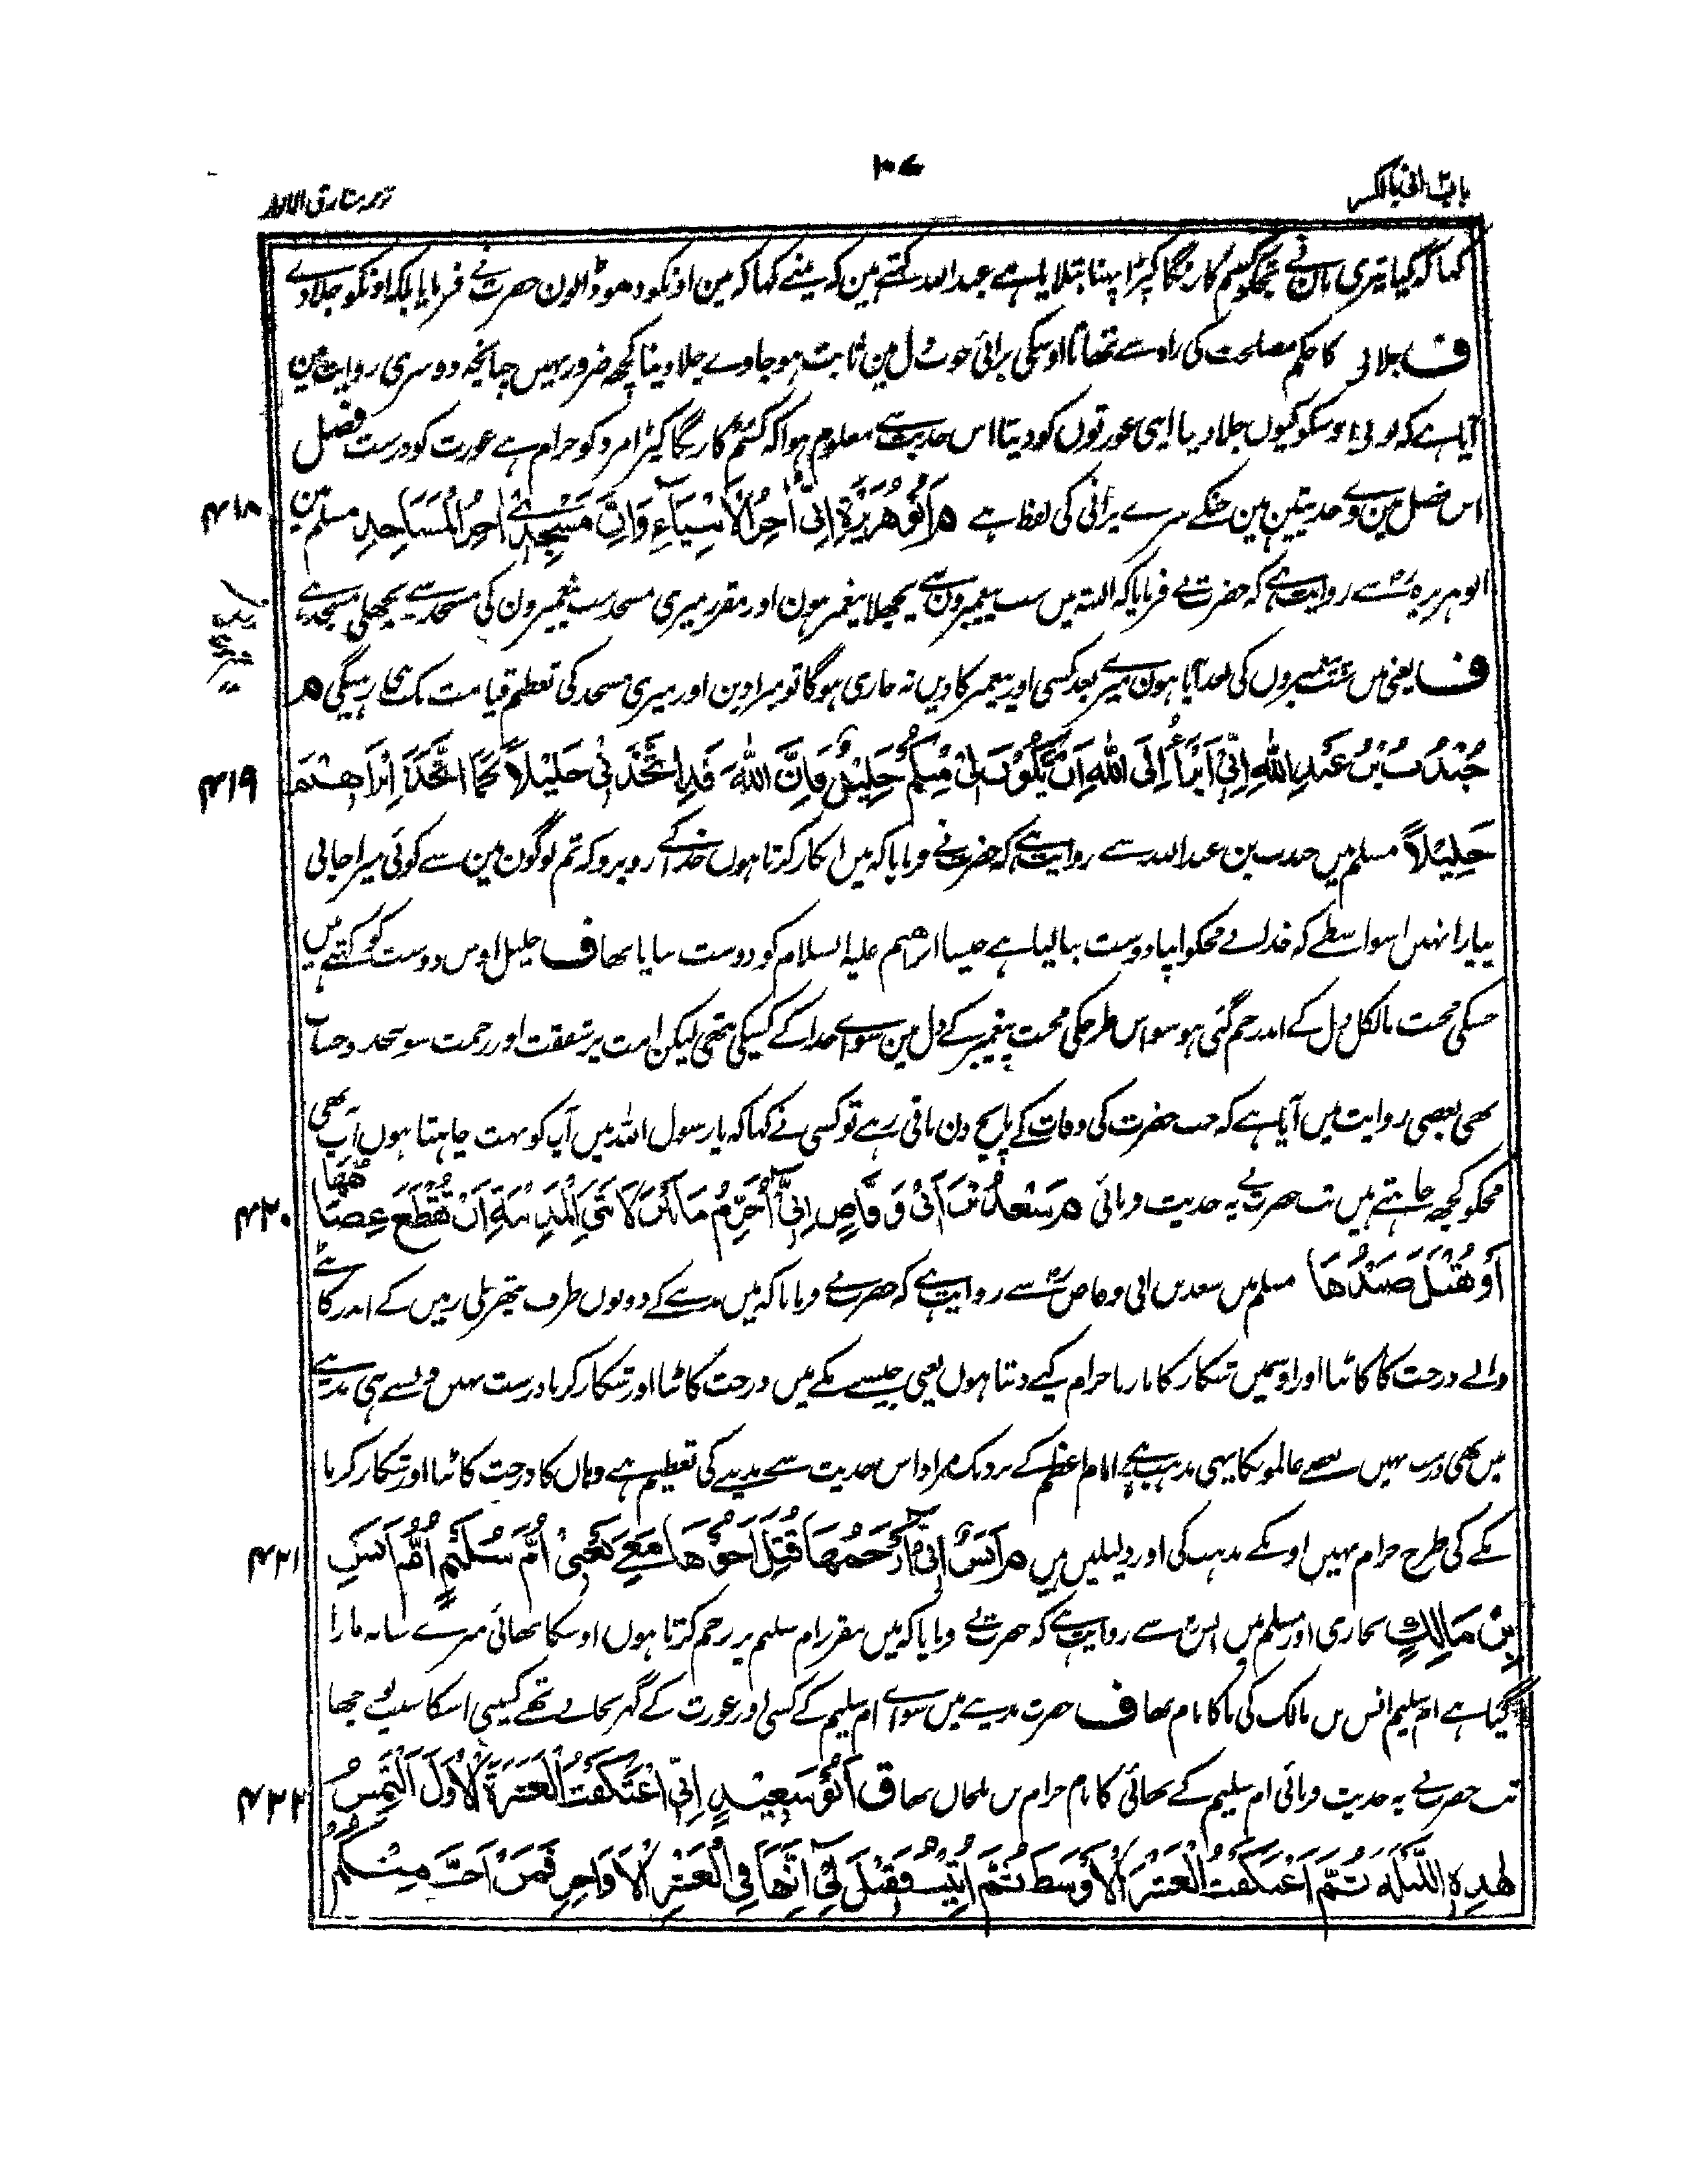 ۱۰۷
باب
کہا کہ کیا تیری مان نے تجھکو کسم کا رنگا کپڑا پہننا بتلایا ہے عبد اللہ کہتے ہین کہ مینے کہا کہ مین اونکو دھو ڈالون حضرت نے فرمایا بلکہ اونکو جلادے
ف جلانی کا حکم مصلحت کی راہ سے تھا تا اوسکی برائی خوب دل مین ثابت ہو جاوے جلا دینا کچھ ضرور نہیں چنانچہ دوسری روایت مین
آیا ہے کہ اوسکو کیوں جلا دیا اپنی عورتوں کو دیتا اس حدیث سے معلوم ہوا کہ کسم کا رنگا کپڑا مرد کو حرام ہے عورت کو درست فصل
اس فصل مین وے حدیثین ہین جنکے سرے پر انی کی لفظ ہے م اَبُو هُرَيْرَةَ اِنِّي اٰخِرُ الْاَنْبِيَاءِ وَاِنَّ مَسْجِدِي اٰخِرُ الْمَسَاجِدِ مسلم مین ۴۱۸
ابو ہریرہ رض سے روایت ہے کہ حضرت نے فرمایا کہ البتہ میں سب پیغمبرون سے پچھلا پیغمبر ہون اور مقرر میری مسجد سب پیغمبرون کی مسجد سے پچھلی مسجد ہے
ف یعنی میں سب پیغمبروں کی بعد آیا ہون میرے بعد کسی اور پیغمبر کا دیں نہ جاری ہوگا تو میرا دین اور میری مسجد کی تعظیم قیامت تک جاری رہیگی م
جُنْدُبُ بْنُ عَبْدِ اللّٰهِ اِنِّي اَبْرَأُ اِلَى اللّٰهِ اَنْ يَكُوْنَ لِيْ مِنْكُمْ خَلِيْلٌ فَاِنَّ اللّٰهَ قَدِ اتَّخَذَنِيْ خَلِيْلًا كَمَا اتَّخَذَ اِبْرَاهِيْمَ ۴۱۹
خَلِيْلًا مسلم میں جندب بن عبد اللہ سے روایت ہے کہ حضرت نے فرمایا کہ میں انکار کرتا ہوں خدا کے روبرو کہ تم لوگون مین سے کوئی میرا جانی
پیارا نہیں اسواسطے کہ خدا نے مجکو اپنا دوست بنا لیا ہے جیسا ابراہیم علیہ السلام کو دوست بنایا تھا ف خلیل اوس دوست کو کہتے ہیں
جسکی محبت بالکل دل کے اندر جم گئی ہو سو اس طرحکی محبت پیغمبر کے دل مین سوائے خدا کے کسیکی نتھی لیکن امت پر شفقت اور رحمت سو بیحد و حساب
تھی بعضی روایت میں آیا ہے کہ جب حضرت کی وفات کے پانچ دن باقی رہے تو کسی نے کہا کہ یا رسول اللہ میں آپ کو بہت چاہتا ہوں آپ بھی
مجکو کچھ چاہتے ہیں تب حضرت نے یہ حدیث فرمائی م سَعْدُ بْنُ اَبِيْ وَقَّاصٍ اِنِّيْ اُحَرِّمُ مَا بَيْنَ لَابَتَيِ الْمَدِيْنَةِ اَنْ تُقْطَعَ عِضَاهُهَا ۴۲۰
اَوْ يُقْتَلَ صَيْدُهَا مسلم میں سعد بن ابی وقاص رض سے روایت ہے کہ حضرت نے فرمایا کہ میں مدینے کے دونوں طرف پتھریلی زمیں کے اندر کانٹے
والے درخت کا کاٹنا اور اوسمیں شکار کا مارنا حرام کیے دیتا ہوں یعنی جیسے مکے میں درخت کاٹنا اور شکار کرنا درست نہیں ویسے ہی مدینے
میں بھی درست نہیں بعضے عالمونکا یہی مذہب ہے امام اعظم کے نزدیک مراد اس حدیث سے مدینے کی تعظیم ہے وہاں کا درخت کاٹنا اور شکار کرنا
مکے کی طرح حرام نہیں اونکے مذہب کی اور دلیلیں ہیں م اَنَسٌ اِنِّيْ اَرْحَمُهَا قُتِلَ اَخُوْهَا مَعِيْ يَعْنِيْ اُمَّ سُلَيْمٍ اُمَّ اَنَسِ ۴۲۱
بْنِ مَالِكٍ بخاری اور مسلم میں انس رض سے روایت ہے کہ حضرت نے فرمایا کہ میں مقرر ام سلیم پر رحم کرتا ہوں اوسکا بھائی میرے ساتھ مارا
گیا ہے ام سلیم انس بن مالک کی ما کا نام تھا ف حضرت مدینے میں سوائے ام سلیم کے کسی اور عورت کے گھر نجاتے تھے کسی نے اسکا سبب پوچھا
تب حضرت نے یہ حدیث فرمائی ام سلیم کے بھائی کا نام حرام بن ملحان تھا ق اَبُوْ سَعِيْدٍ اِنِّي اعْتَكَفْتُ الْعَشْرَ الْاَوَّلَ اَلْتَمِسُ ۴۲۲
هٰذِهِ اللَّيْلَةَ ثُمَّ اعْتَكَفْتُ الْعَشْرَ الْاَوْسَطَ ثُمَّ اُتِيْتُ فَقِيْلَ لِيْ اِنَّهَا فِي الْعَشْرِ الْاَوَاخِرِ فَمَنْ اَحَبَّ مِنْكُمْ